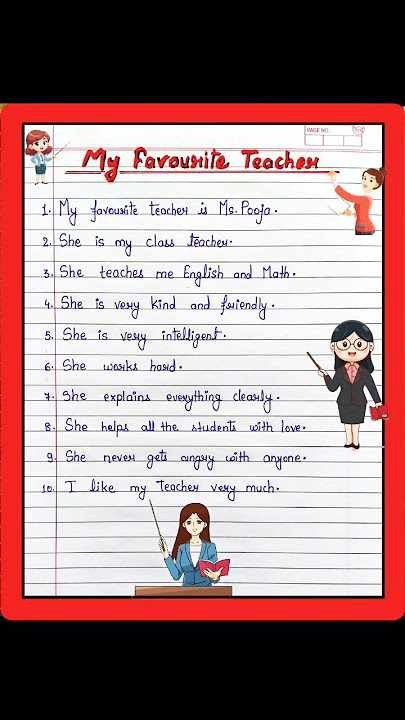 PAGE NO.
My Favourite Teacher
1. My favourite teacher is Ms. Pooja.
2. She is my class teacher.
3. She teaches me English and Math.
4. She is very kind and friendly.
5. She is very intelligent.
6. She works hard.
7. She explains everything clearly.
8. She helps all the students with love.
9. She never gets angry with anyone.
10. I like my teacher very much.